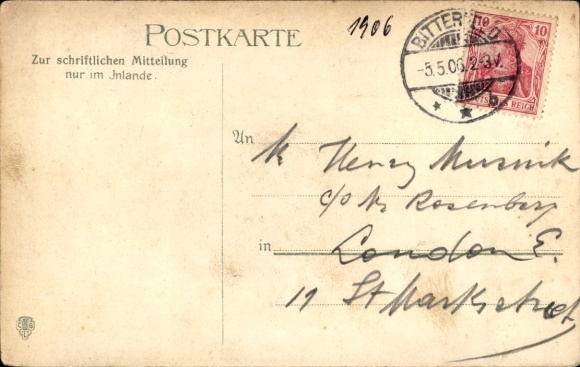 1906
POSTKARTE
Zur schriftlichen Mitteilung
nur im Inlande.
BITTERFELD
-5.5.06. 2-3V.
* * b
10 10
DEUTSCHES REICH
An
Mr Henry Musnik
c/o Mr Rosenberg
in London E.
17 St Markstreet